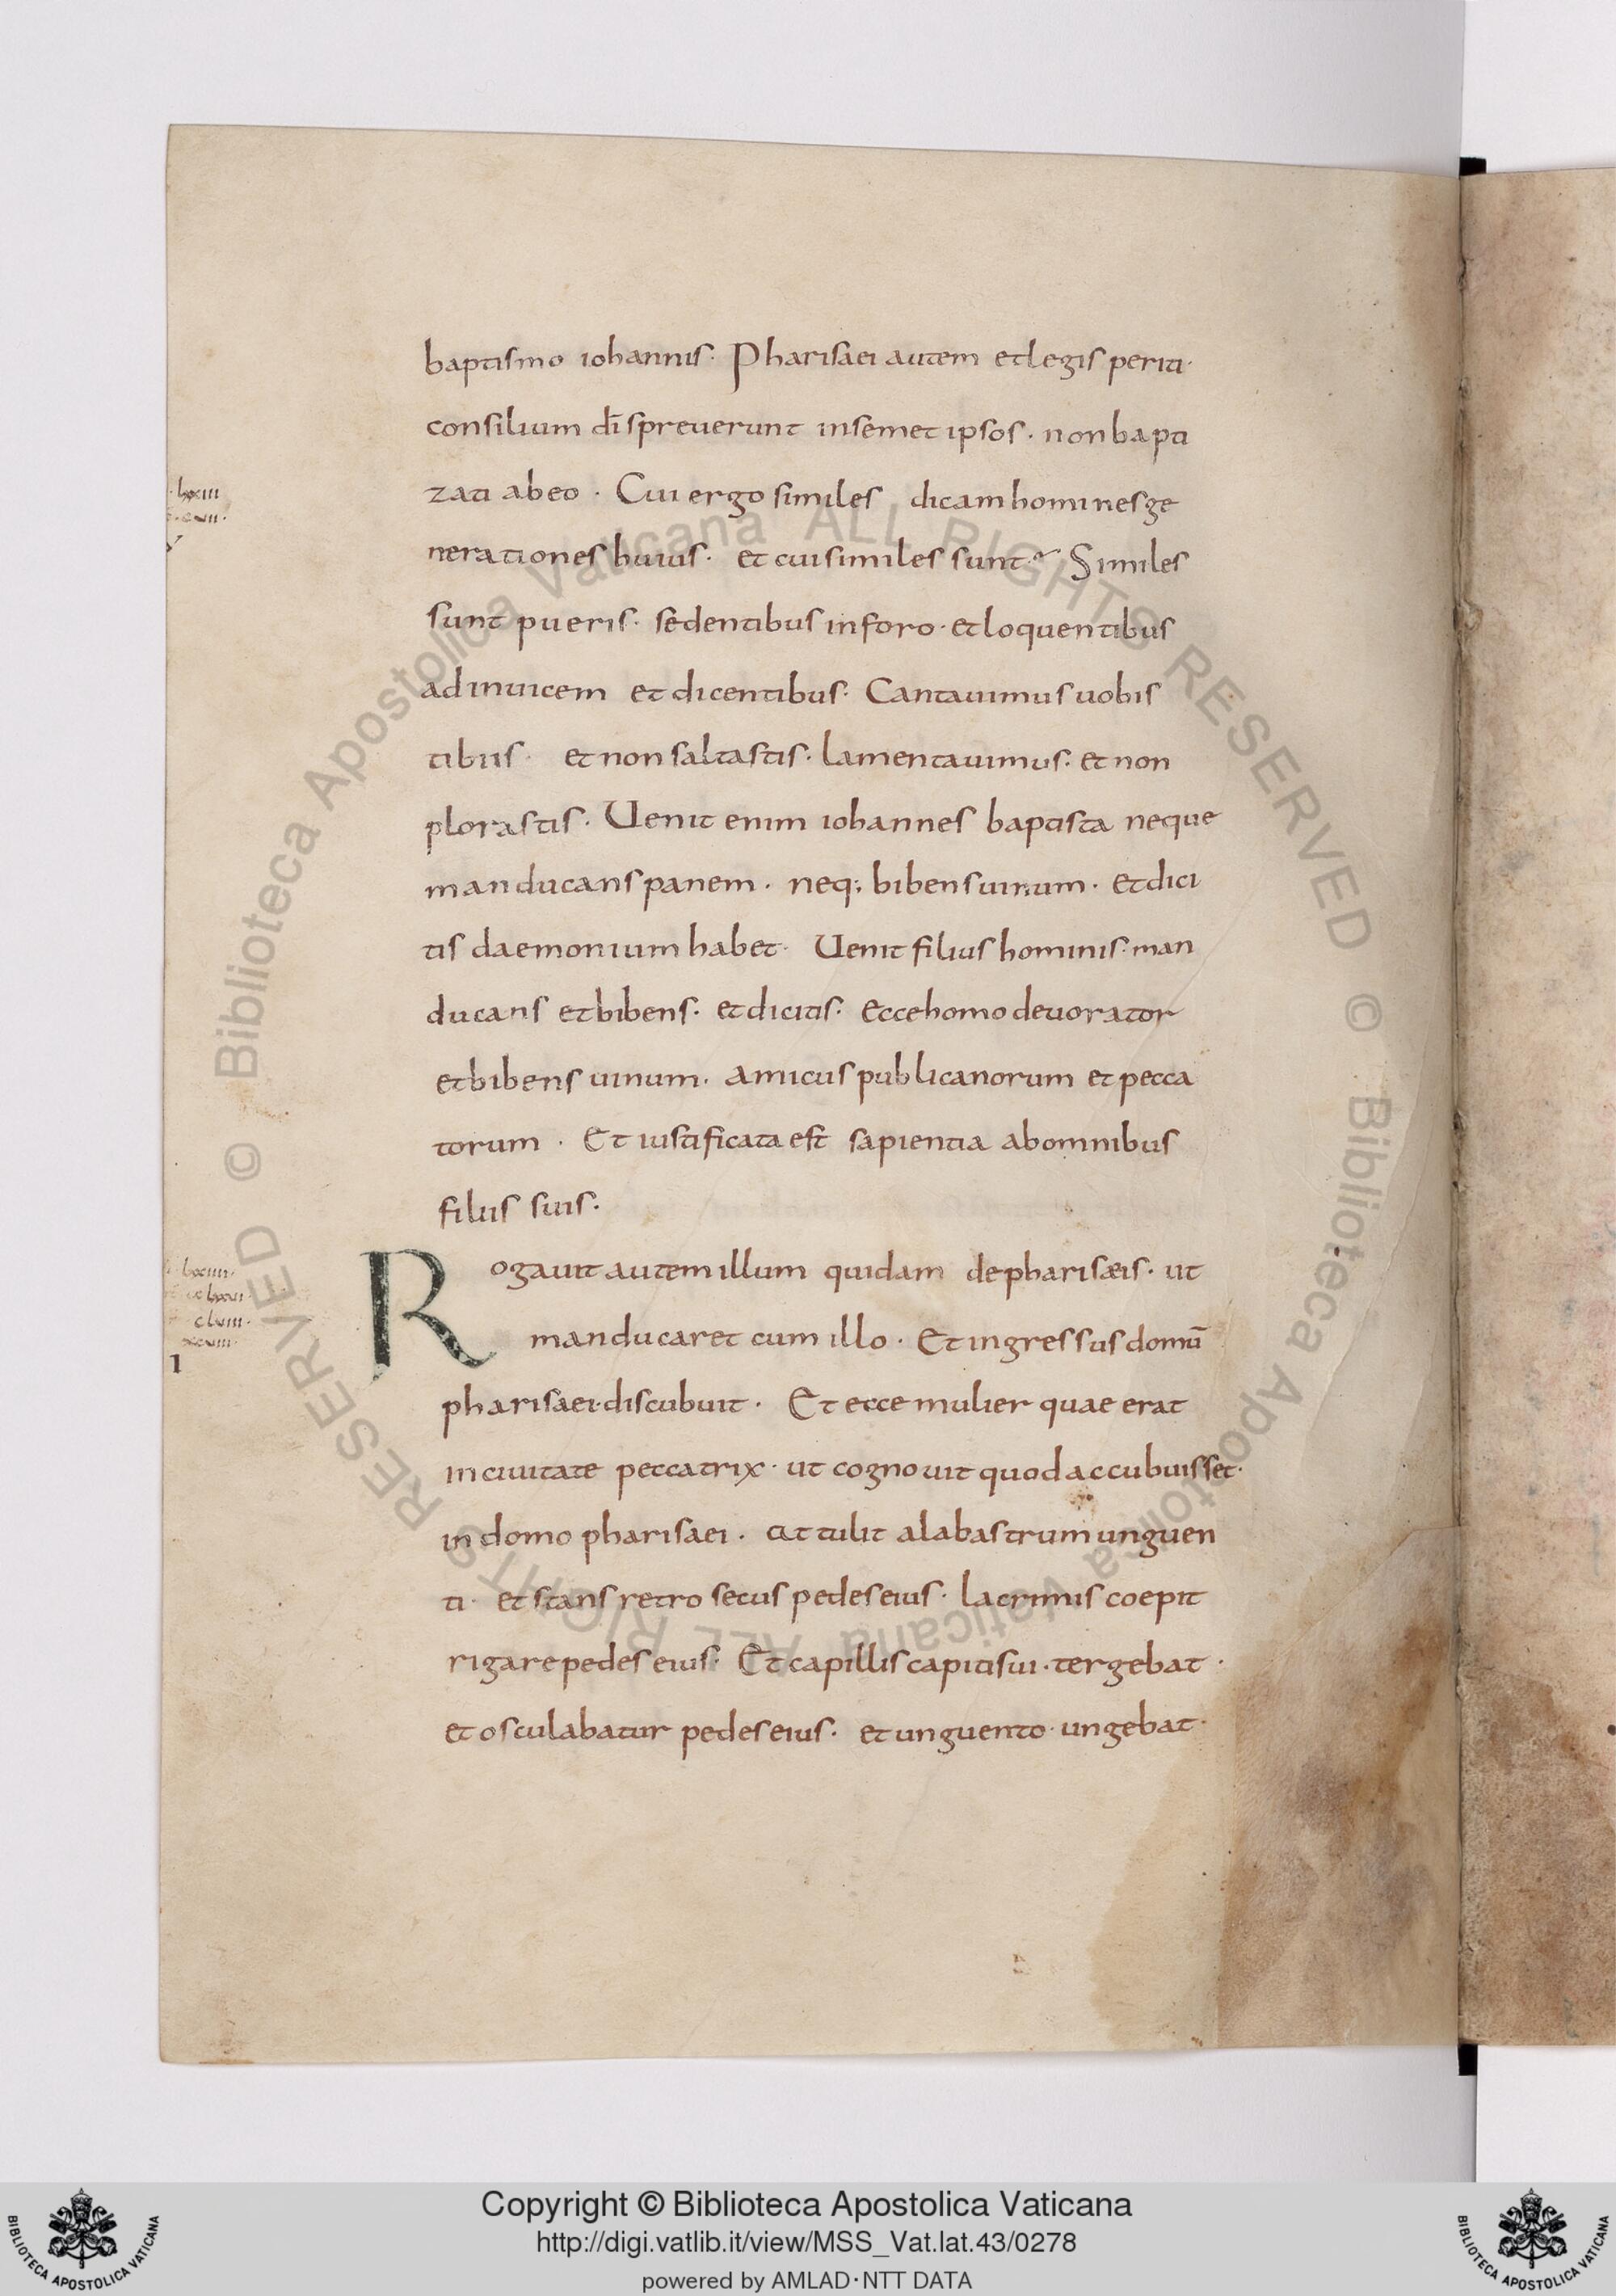 baptismo iohannis· Pharisaei autem et legis periti·
consilium dī spreuerunt in semet ipsos· non bapti
zati ab eo· Cui ergo similes dicam homines ge
nerationes huius· et cui similes sunt? Similes
sunt pueris· sedentibus in foro· et loquentibus
ad inuicem et dicentibus· Cantauimus uobis
tibiis· et non saltastis· lamentauimus· et non
plorastis· Uenit enim iohannes baptista neque
manducans panem· neq; bibens uinum· et dici
tis daemonium habet· Uenit filius hominis· man
ducans et bibens· et dicitis· Ecce homo deuorator
et bibens uinum· amicus publicanorum et pecca
torum· Et iustificata est sapientia ab omnibus
filiis suis·
Rogauit autem illum quidam de pharisæis· ut
manducaret cum illo· Et ingressus domū
pharisaei· discubuit· Et ecce mulier quae erat
in ciuitate peccatrix· ut cognouit quod accubuisset·
in domo pharisaei· attulit alabastrum unguen
ti· et stans retro secus pedes eius· lacrimis coepit
rigare pedes eius· Et capillis capitis sui· tergebat·
et osculabatur pedes eius· et unguento· ungebat·
Copyright © Biblioteca Apostolica Vaticana
http://digi.vatlib.it/view/MSS_Vat.lat.43/0278
powered by AMLAD·NTT DATA
© Biblioteca Apostolica Vaticana ALL RIGHTS RESERVED
© Biblioteca Apostolica Vaticana ALL RIGHTS RESERVED
BIBLIOTECA APOSTOLICA VATICANA
BIBLIOTECA APOSTOLICA VATICANA